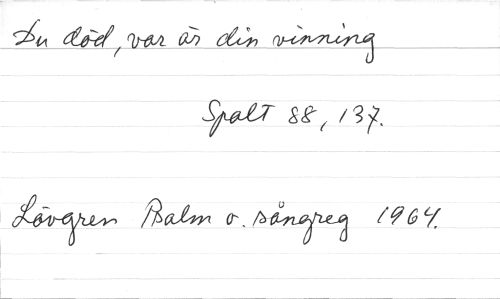 Du död, var är din vinning
Spalt 88, 137.
Lövgren Psalm o. sångreg 1964.